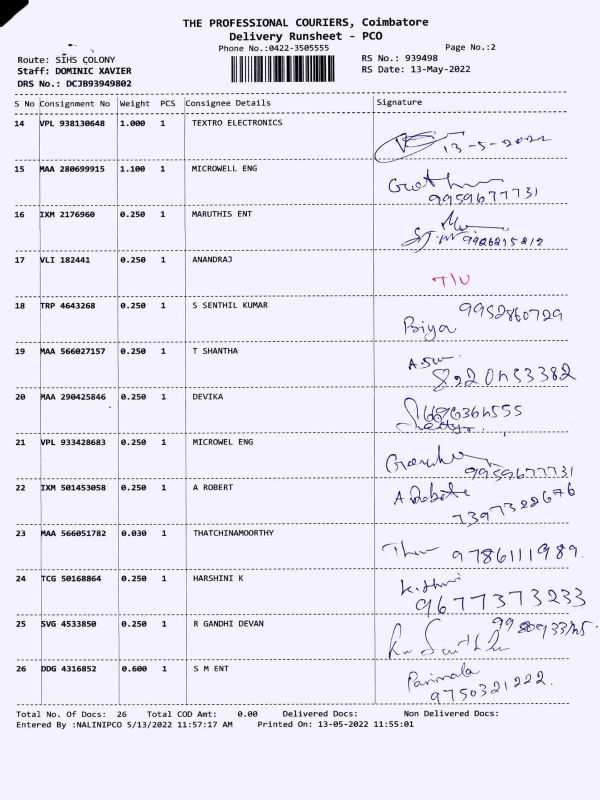 THE PROFESSIONAL COURIERS, Coimbatore
Delivery Runsheet - PCO
Phone No.:0422-3505555 Page No.:2
Route: SIHS COLONY RS No.: 939498
Staff: DOMINIC XAVIER RS Date: 13-May-2022
DRS No.: DCJB93949802
S No Consignment No Weight PCS Consignee Details Signature
14 VPL 938130648 1.000 1 TEXTRO ELECTRONICS
13-5-2022
15 MAA 280699915 1.100 1 MICROWELL ENG
9959677731
16 IXM 2176960 0.250 1 MARUTHIS ENT
9926215212
17 VLI 182441 0.250 1 ANANDRAJ
T/U
18 TRP 4643268 0.250 1 S SENTHIL KUMAR
9952860729
Priya
19 MAA 566027157 0.250 1 T SHANTHA
20 MAA 290425846 0.250 1 DEVIKA
21 VPL 933428683 0.250 1 MICROWEL ENG
9959677731
22 IXM 501453058 0.250 1 A ROBERT
7397322676
23 MAA 566051782 0.030 1 THATCHINAMOORTHY
9786111989.
24 TCG 50168864 0.250 1 HARSHINI K
9677373233
25 SVG 4533850 0.250 1 R GANDHI DEVAN
26 DDG 4316852 0.600 1 S M ENT
Parimala
9750321222.
Total No. Of Docs: 26 Total COD Amt: 0.00 Delivered Docs: Non Delivered Docs:
Entered By :NALINIPCO 5/13/2022 11:57:17 AM Printed On: 13-05-2022 11:55:01